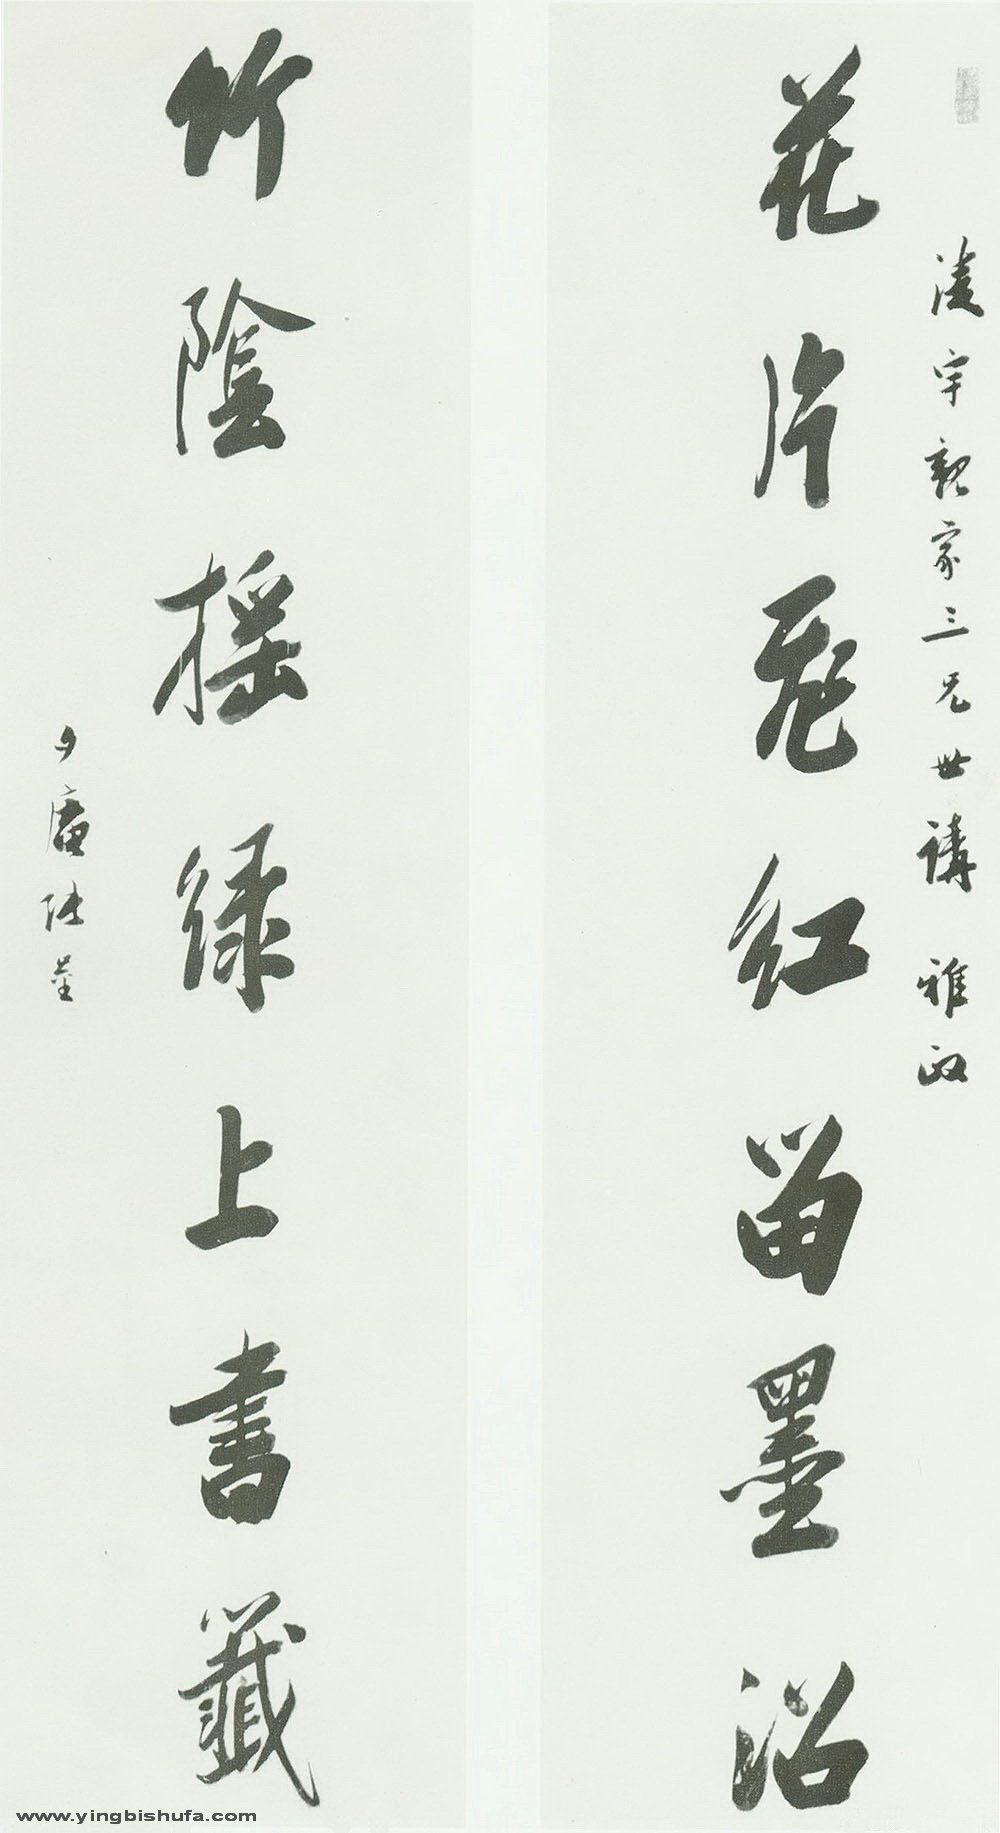 淩宇親家三兄世講 雅政
花片飛紅留墨沼
竹陰摇緑上書籤
夕庵張崟
www.yingbishufa.com